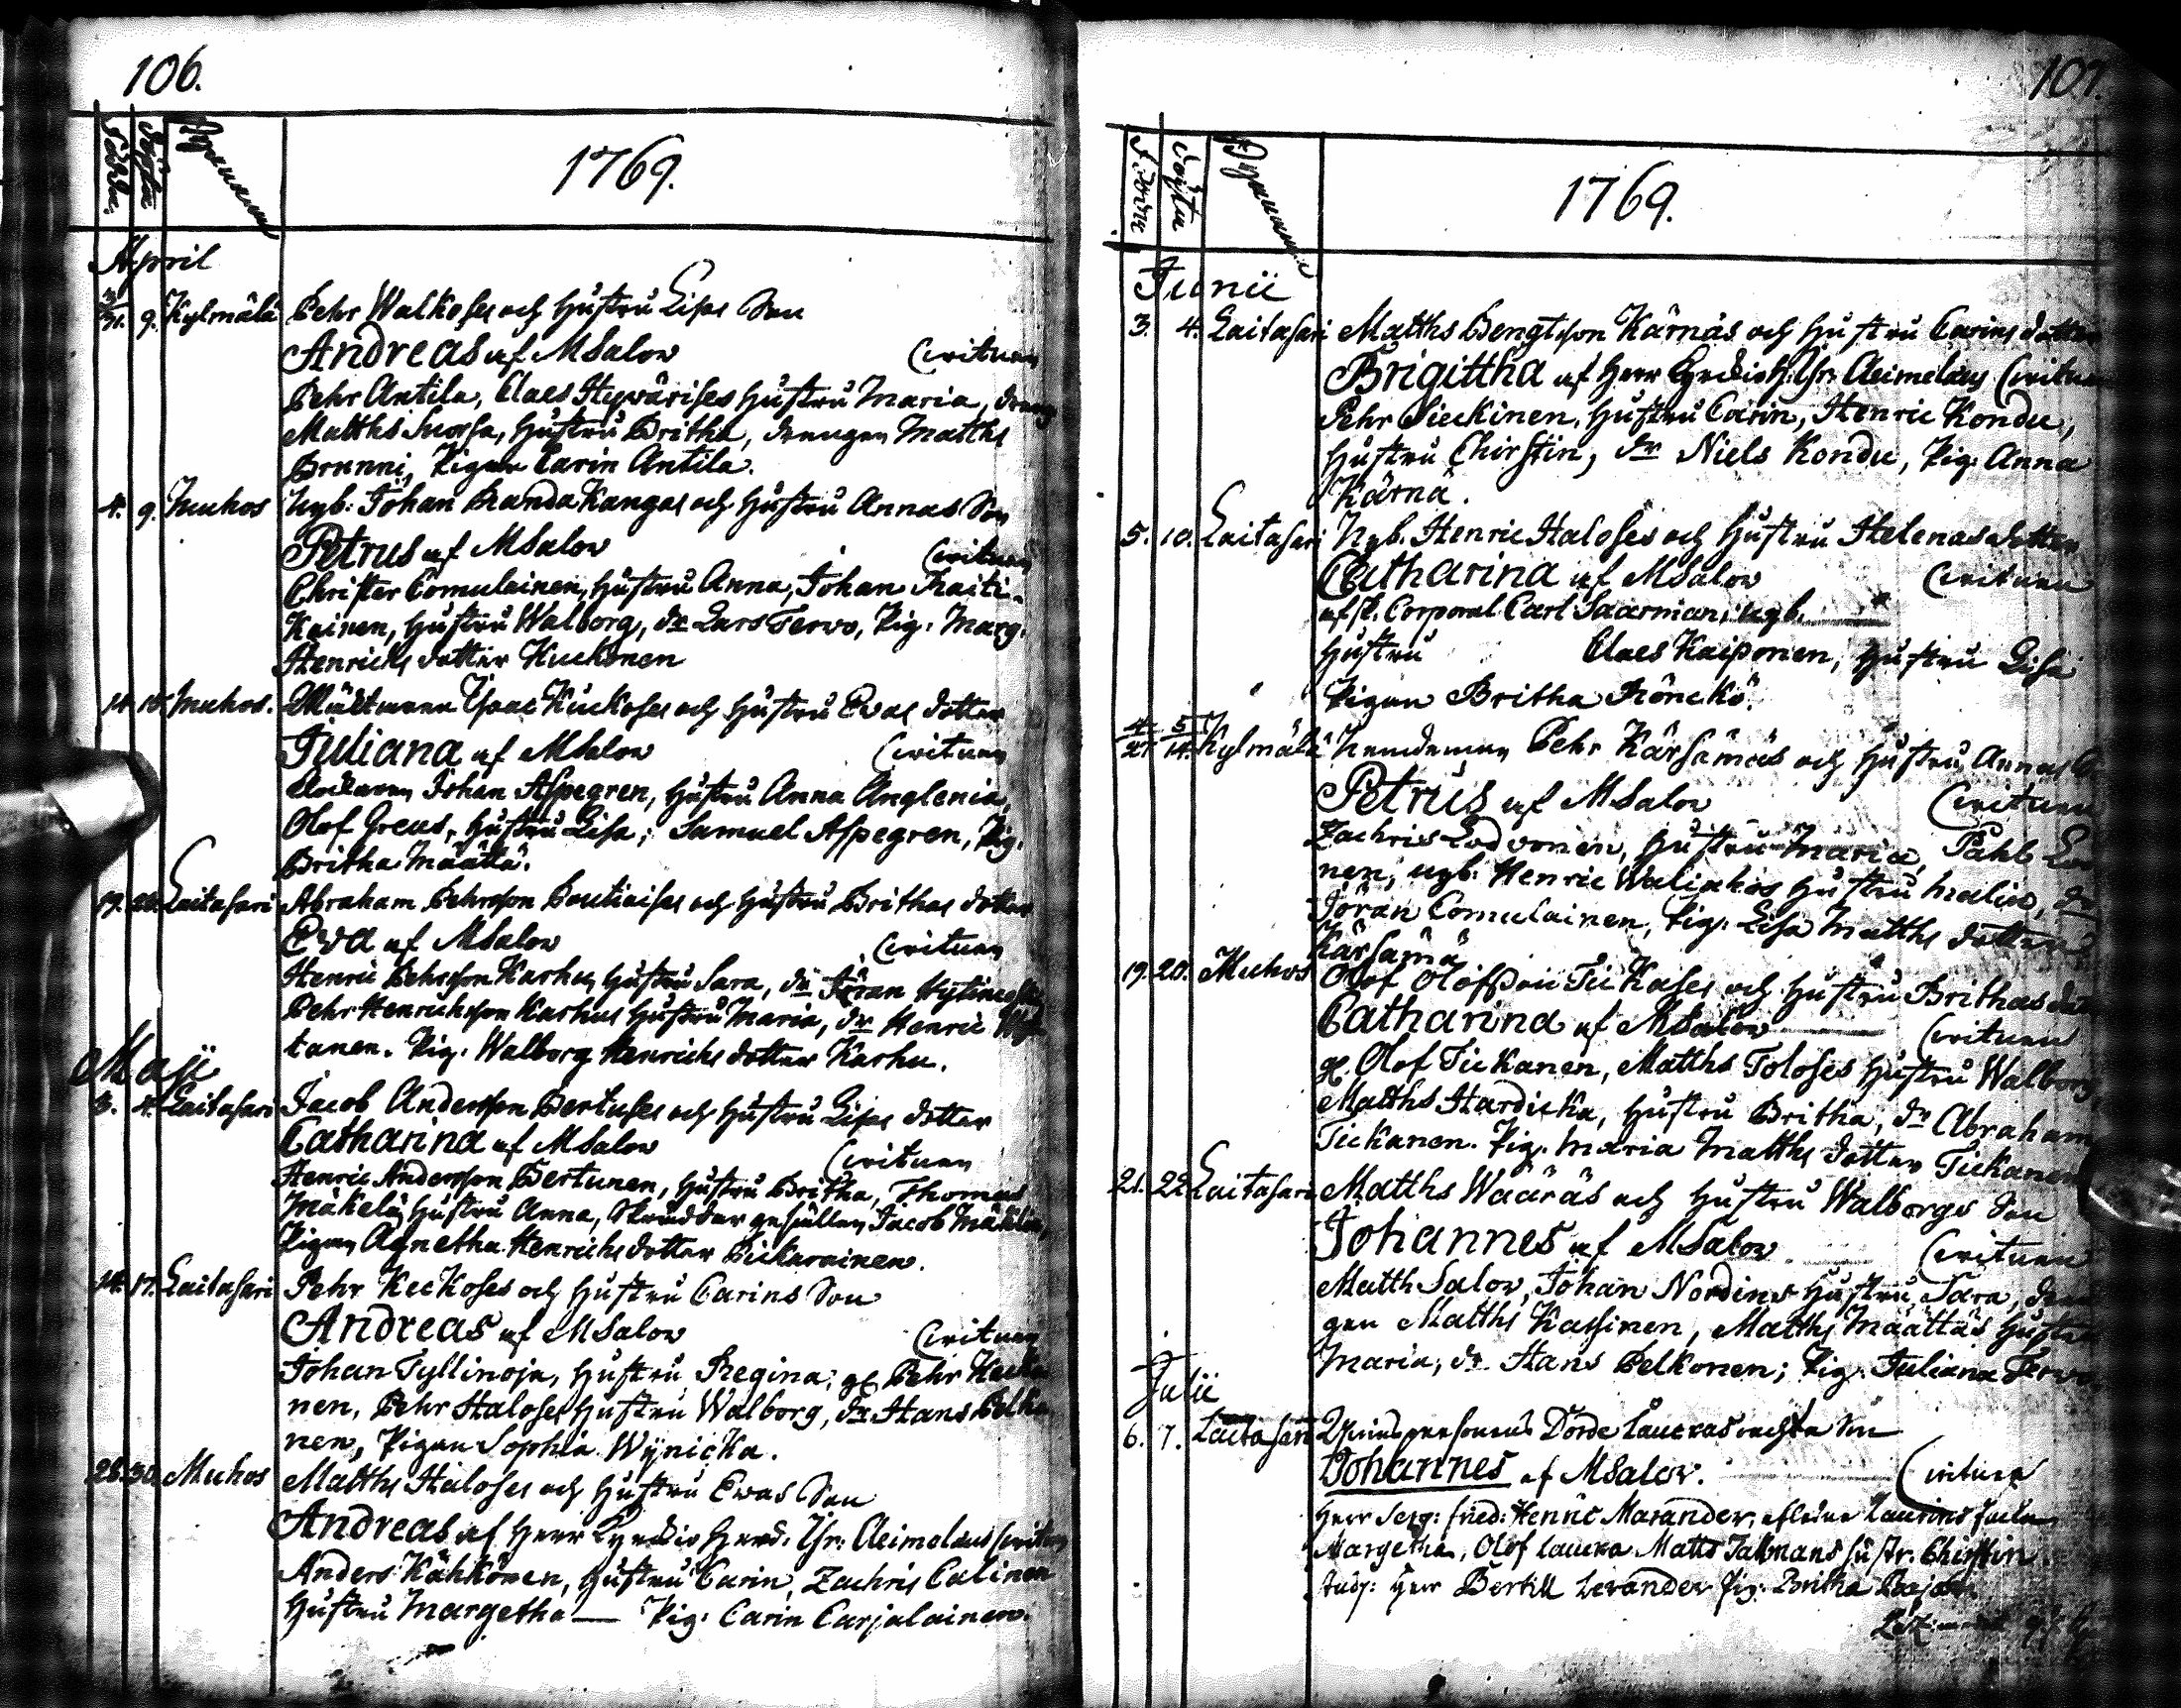 106.
Födde. Döpte Byarnamn
1769.
April
3/31. 9. Kylmälä Pehr Walkoses och Hustru Lisas Son
Andreas af MSalow Cærituen
Pehr Antila, Claes Hyvärises Hustru Maria, dräng
Matths Suorsa, Hustru Britha, drängen Matths
Brunni, Pigan Carin Antila.
4. 9. Muhos Nyb: Johan Randa Kangas och Hustru Annas Son
Petrus af MSalow Cærituen
Christer Comulainen, Hustru Anna, Johan Raiti-
Kainen, Hustru Walborg, dr Lars Terwo, Pig. Marg.
Henrichs dotter Kuckonen
14. 16. Muhos. Isaac Kuckoses och Hustru Evas dotter
Juliana af MSalow Cærituen
Johan Aspegren, Hustru Anna Anglenia,
Olof Greus, Hustru Lisa; Samuel Aspegren, Pig.
Britha Määttä.
19. 20. Laitasari Abraham Pehrsson Poutiaises och Hustru Brithas dotter
Eva af MSalow Cærituen
Henric Pehrsson Karhu, Hustru Sara, dr Jöran
Pehr Henrichsson Karhus Hustru Maria, dr Henric
tanen. Pig. Walborg Henrichs dotter Karhu.
Maji
3. 4. Laitasari Jacob Andersson Bertuses och Hustru Lisas dotter
Catharina af MSalow Cærituen
Henric Andersson Bertunen, Hustru Britha, Thomas
Mäkelä, Hustru Anna, Skräddar gesällen Jacob
Pigan Agnetha Henrichs dotter Pickarainen.
14. 17. Laitasari Pehr KecKoses och Hustru Carins Son
Andreas af MSalow Cærituen
Johan Tyllinoja, Hustru Regina, gl Pehr
nen, Pehr Haloses Hustru Walborg, dr Hans Pelko
nen, Pigan Sophia WynicKa.
28. 30. Muhos Matths Haloses och Hustru Evas Son
Andreas af Herr Chr: Aeimelaus
Anders Kähkönen, Hustru Carin, Zachris Calinen
Hustru Margetha — Pig: Carin Carjalainen.
107.
Födde Döpte Byarnamn
1769.
Junii
3. 4. Laitasari Matths Bengtsson Kärnäs och Hustru Carins dotter
Brigittha af Herr Chr: Aeimelaus Cærituen
Pehr Sieckinen, Hustru Carin, Henric Kondu,
Hustru Chirstin, dr Niels Kondu, Pig: Anna
Kärnä.
5. 10. Laitasari Nyb. Henric Haloses och Hustru Helenas dotter
Catharina af MSalow Cærituen
afsk. Corporal Carl Saarman, nyb.
Hustru Claes Kaiponen, Hustru Lisa
Pigan Britha Rönckö.
4/27 5/14. Kylmälä Nemdeman Pehr Kärsämäs och Hustru Annas
Petrus af MSalow Cærituen
Zachris Lodvonen, Hustru Maria, Pahl
nen, nyb. Henric Waliahos Hustru Malin, dr
Jöran Comulainen, Pig. Lisa Matths dotter
Kärsämä
19. 20. Muhos Olof Olofsson TicKases och Hustru Brithas
Catharina af MSalow Cærituen
gl. Olof Tickanen, Matths Toloses Hustru Walborg
Matths Hardicka, Hustru Britha, dr Abraham
Tickanen. Pig. Maria Matths dotter Tickanen
21. 22. Laitasari Matths Wääräs och Hustru Walborgs Son
Johannes af MSalow Cærituen
Matth Salow, Johan Nordins Hustru Sara,
gen Matths Kassinen, Matths Määttäs Hustru
Maria, dr Hans Pelkonen; Pig: Juliana Terwo
Julii
6. 7. Laitasari Dorde Lauckas Son
Johannes af MSalow.
Herr Serg: Fried: Henric Marander,
Margetha, Olof Laucka Matts Jakmans Hustr. Chirstin
Stud: Herr Bertill Levander Pig: Britha